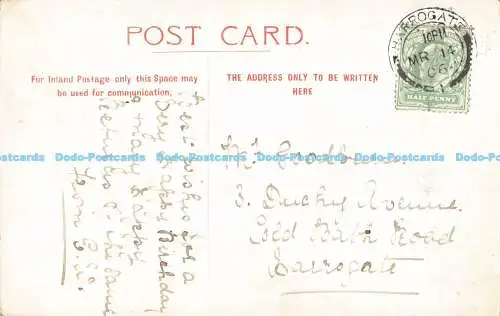 POST CARD.
For Inland Postage only this Space may
be used for communication.
THE ADDRESS ONLY TO BE WRITTEN
HERE
HARROGATE
10 PM
MR 14
06
HALF PENNY
Best wishes for a
Very Happy Birthday
& many Happy
Returns of the same
from
3. Duchy Avenue
Cold Bath Road
Harrogate
Dodo-Postcards Dodo-Postcards Dodo-Postcards Dodo-Postcards